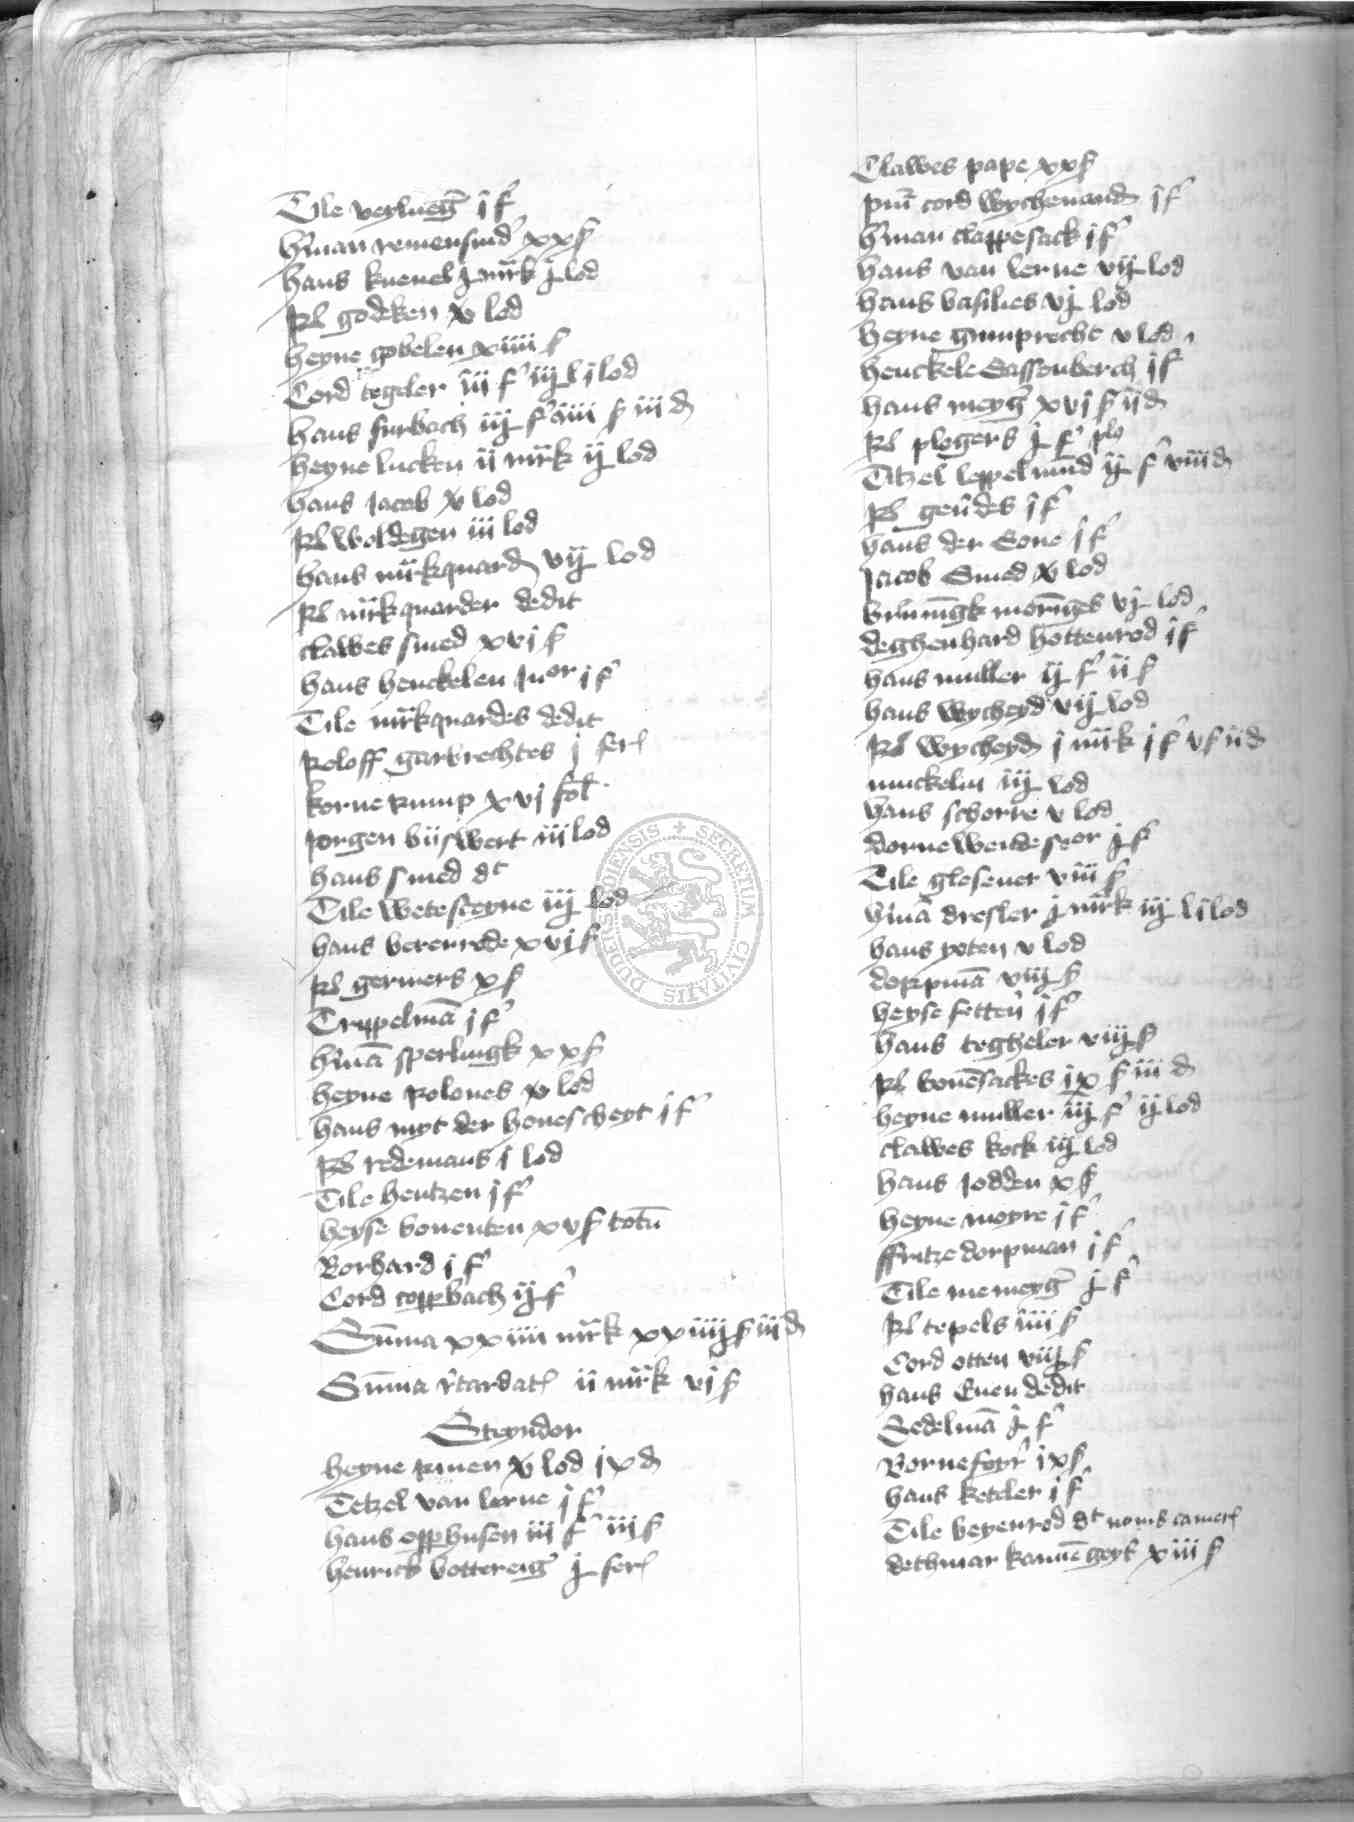 Tile verlueg̃ j f
h̓man remensnid̓ xxß
hans kneuel j mr̃k j lod
Rel̃ godeken v lod
heyne gobelen xiiii ß
Cord tegeler iii f iij lod
hans surbach iij f iiii ß iii d
heyne lucken ii mr̃k ij lod
hans Jacob v lod
Rel̃ woldegen iii lod
hans mr̃kquard vij lod
Rel̃ mr̃kquarder dedit
clawes smed xvj ß
hans henckelen Junor j f
Tile mr̃kquardes dedit
Roloff garbrechtes j fer̃
korne Rump xvj sol̃
Jorgen biiswert iii lod
hans smed dt
Tile wetesteyne iij lod
hans berenrode xvj ß
Rel̃ germers x ß
Trippelmã j f
h̓mã sperlingk xx ß
heyne Rolones v lod
hans myt der honescheyt j f
Rel̃ redemans j lod
Tile hentzen j f
heyse bonenten xv ß totũ
Borhard j f
Cord toppbach ij f
Sum̃a xxiiii mr̃k xxiiij ß iii d
Sum̃a r̃tardat̃ ii mr̃k vj ß
Steyndor
heyne rmen v lod ix d
Tetzel van lerne j f
hans opphusen iii f iij ß
henrich bottereng̃ j fer̃
Clawes pape xx ß
pm̃ cord wychenand j f
h̓man clappesack j f
hans van lerne vij lod
hans basilies vj lod
heyne gumprecht v lod
henckele Sassenberch j f
hans meyg̃ xvj ß ij d
Rel̃ plogers j f plo
Titzel leppelmnd ij f viii d
Rel̃ gerdes j f
hans der Eone j f
Jacob Smed v lod
bruningk mornges vj lod
deghenhard hottenrod j f
hans muller ij f ii ß
hans wycheyd vij lod
Rel̃ wycheyd j mr̃k j f v ß ii d
nuckelm iij lod
hans schorre v lod
dornewende seor j f
Tile glesener viii ß
h̓mã dresler j mr̃k iij lod
hans poten v lod
dorpmã viij ß
heyse fetten j f
hans tegheler viij ß
Rel̃ bonẽsackes ix ß iii d
heyne muller iij f ij lod
clawes kock iij lod
hans Jodden x ß
heyne moyre j f
ffritze dorpman j f
Tile nemeyg̃ j f
Rel̃ tepels iiii ß
Cord otten viij ß
hans Euen dedit
Sedelmã j f
Bornefoyr̃ ix ß
hans keteler j f
Tile beyenrod dt nom̃s camer̃
dethmar kannẽgeyt xiii ß
DUDERSTADIENSIS + SECRETUM CIVITATIS